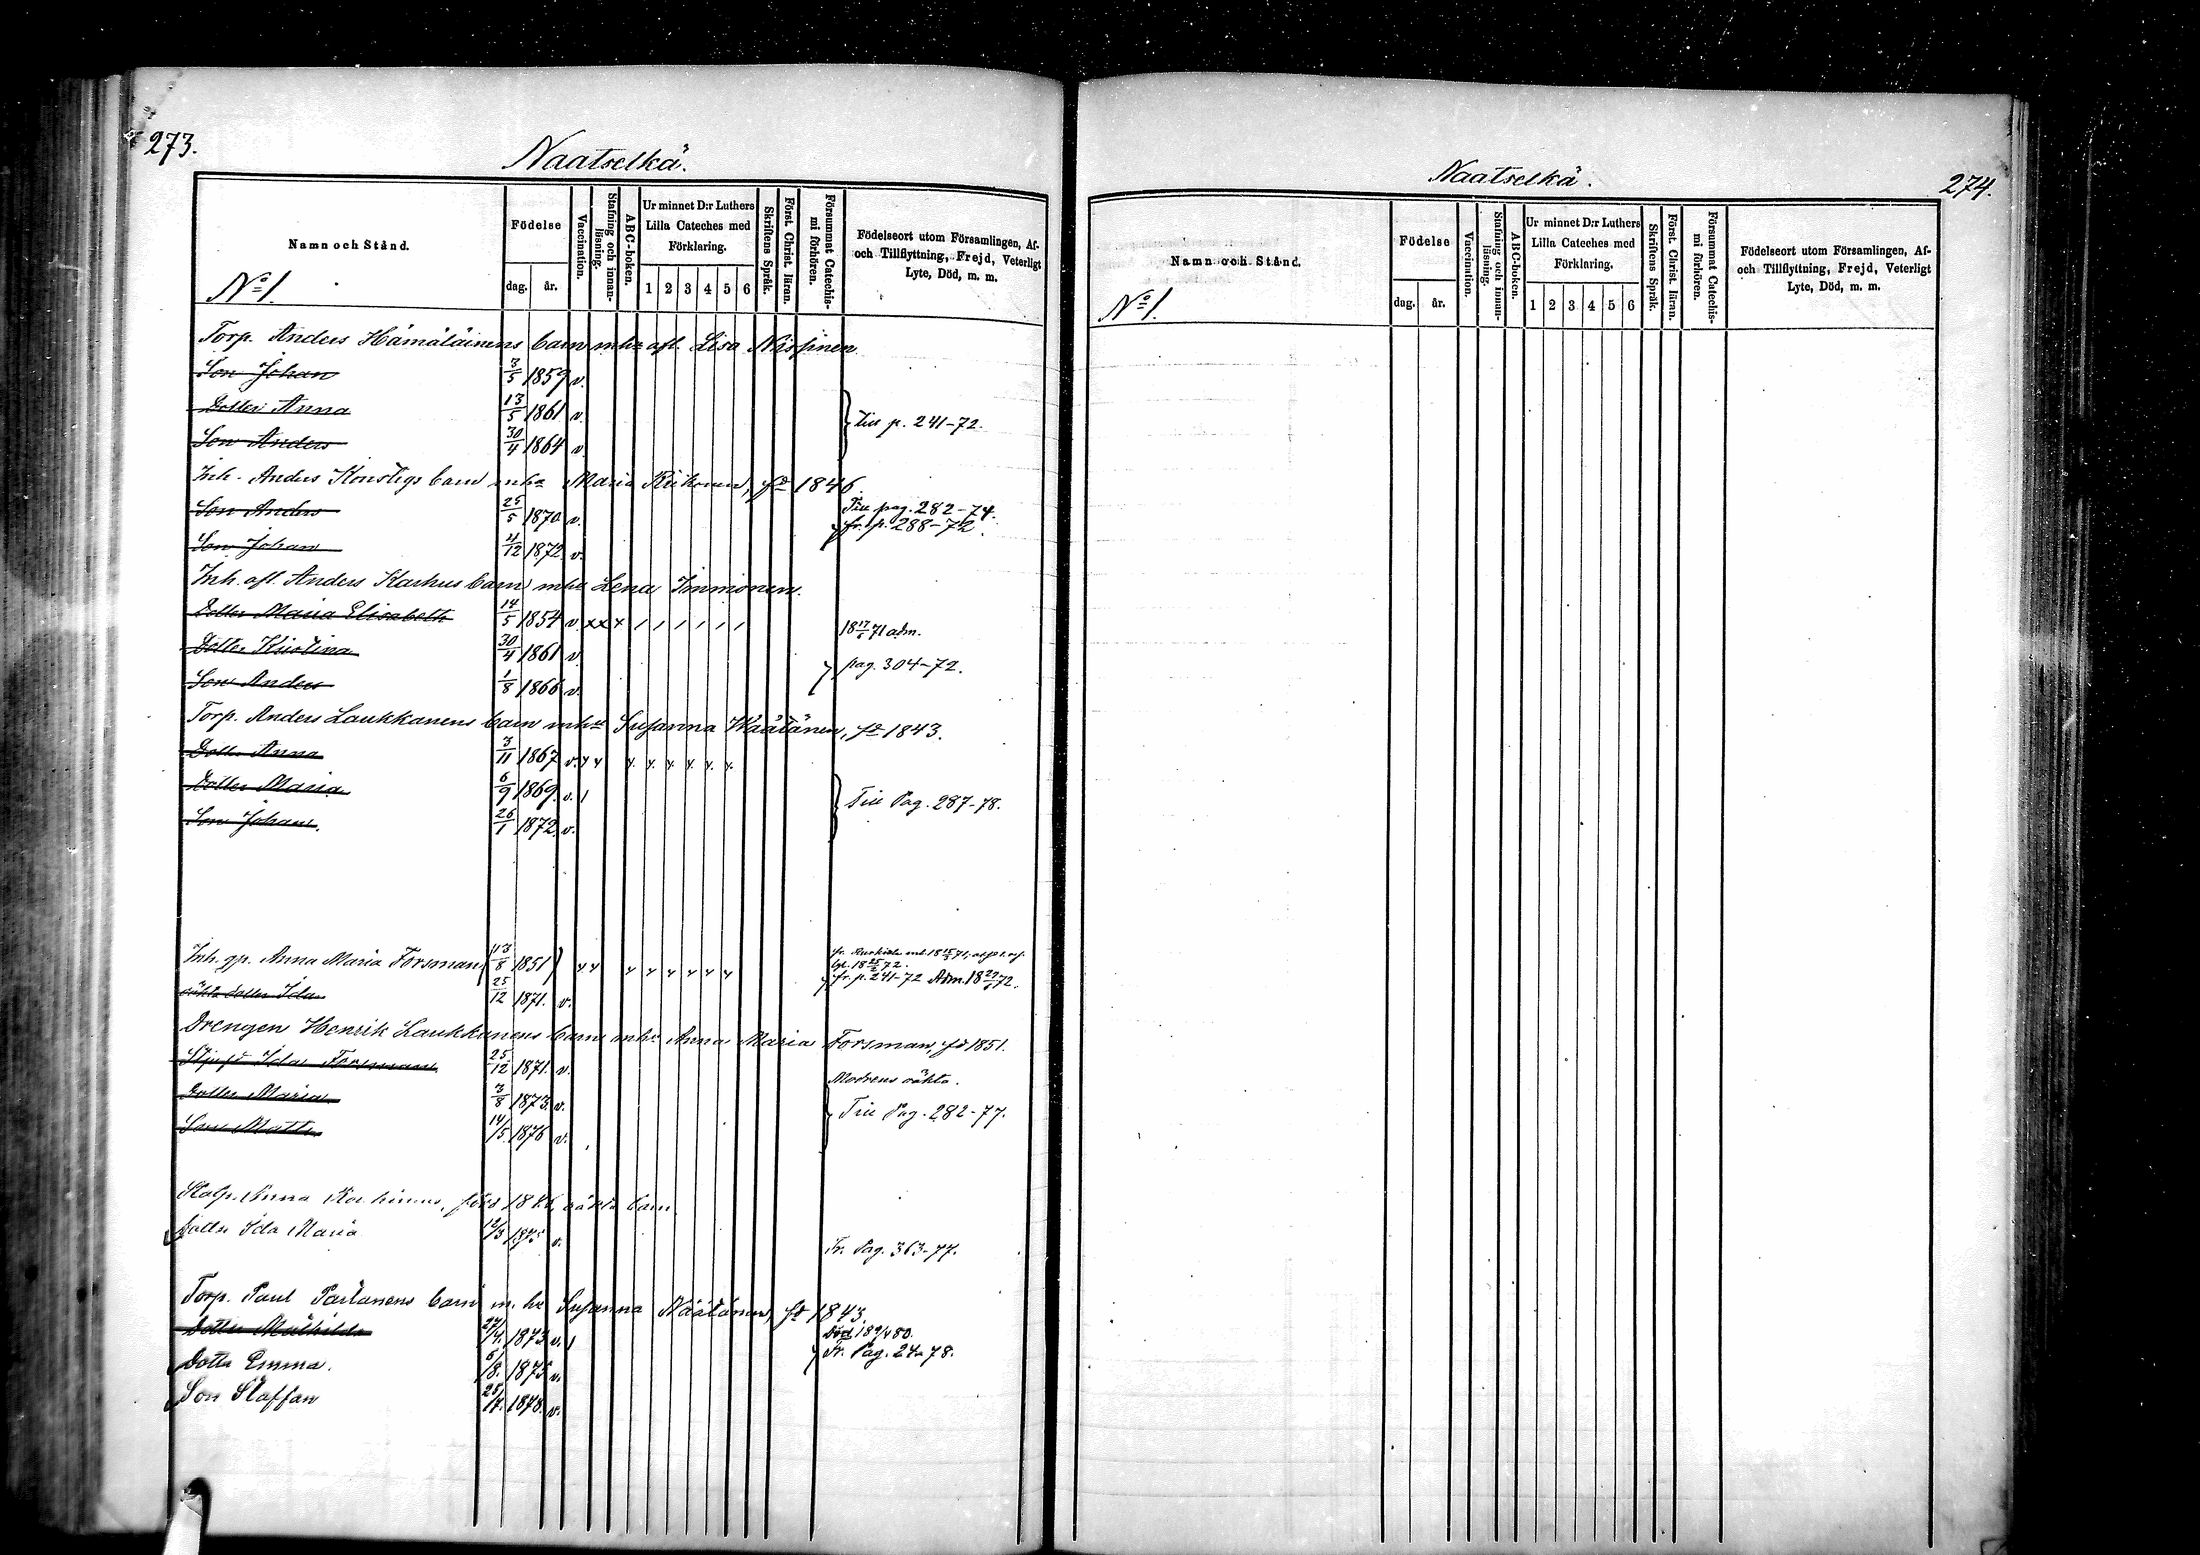 273.
Naatselkä.
Namn och Stånd.
Födelse
dag. år.
Vaccination.
Stafning och innan-läsning.
ABC-boken.
Ur minnet D:r Luthers
Lilla Cateches med
Förklaring.
1 2 3 4 5 6
Skriftens Språk.
Först. Christ. läran.
Försummat Catechis-mi förhören.
Födelseort utom Församlingen, Af-
och Tillflyttning, Frejd, Veterligt
Lyte, Död, m. m.
No 1.
Torp. Anders Hämäläinens barn mhu afl. Lisa Nissinen
Son Johan 3/5 1859 v.
Dotter Anna 13/5 1861 v.
Till p. 241-72.
Son Anders 30/4 1864 v.
Inh. Anders Konstigs barn mhu Maria Riikonen, fd 1846.
Son Anders 25/5 1870 v. Till pag. 282-74.
fr. p. 288-72.
Son Johan 4/12 1872 v.
Inh. afl. Anders Karhus barn mhu Lena Immonen.
Dotter Maria Elisabeth 14/5 1854 v. x x x / / / / / / 18 17/6 71 adm.
Dotter Kristina 30/4 1861 v.
pag. 304-72.
Son Anders 1/8 1866 v.
Torp. Anders Laukkanens barn mhu Susanna Väätänen, fd 1843.
Dott. Anna 3/11 1867 v. y y y. y. y. y. y. y.
Dotter Maria 6/9 1869. v. /
Till Pag. 287-78.
Son Johan. 26/1 1872. v.
Inh. qp. Anna Maria Forsman (13/8 1851) y y y y y y y y
fr. p. 241-72 Adm. 18 72.
oäkta dotter Ida 25/12 1871. v.
Drengen Henrik Laukkanens barn mhu Anna Maria Forsman, fd 1851.
Ida Forsman 25/12 1871. v.
Modrens oäkta.
Dotter Maria 3/8 1873. v.
Till Pag. 282-77.
Son Matts 14/5. 1876 v.
Anna född oäkta barn
Dotter Ida Maria 12/3 1875 v.
Fr. Pag. 363-77.
Torp. Paul Partanens barn m. hu Susanna Väätänen, fd 1843.
Dotter Mathilda 27/4. 1873 v. / Död 80.
Fr. Pag. 24-78.
Dotter Emma. 6/8. 1875 v.
Son Staffan 25/7. 1878. v.
Naatselkä.
274.
Namn och Stånd.
Födelse
dag. år.
Vaccination.
Stafning och innan-läsning.
ABC-boken.
Ur minnet D:r Luthers
Lilla Cateches med
Förklaring.
1 2 3 4 5 6
Skriftens Språk.
Först. Christ. läran.
Försummat Catechis-mi förhören.
Födelseort utom Församlingen, Af-
och Tillflyttning, Frejd, Veterligt
Lyte, Död, m. m.
No 1.